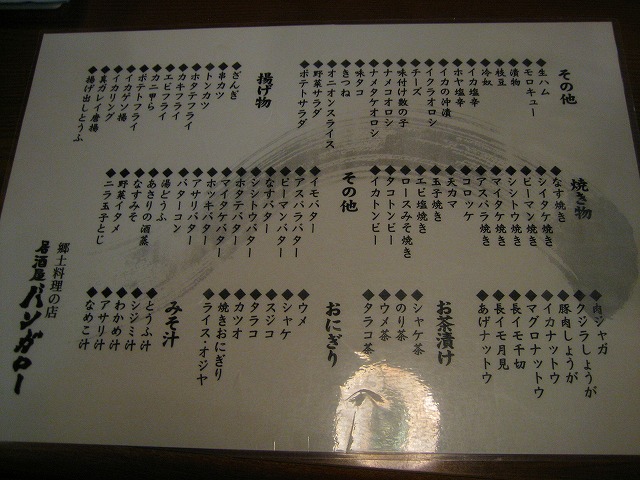 その他
◆生ハム
◆モロキュー
◆漬物
◆枝豆
◆冷奴
◆イカ塩辛
◆ホヤ塩辛
◆イカの沖漬
◆イクラオロシ
◆味付け数の子
◆チーズ
◆ナメコオロシ
◆ナメタケオロシ
◆味タコ
◆きつね
◆オニオンスライス
◆野菜サラダ
◆ポテトサラダ
揚げ物
◆ざんぎ
◆串カツ
◆トンカツ
◆ホタテフライ
◆カキフライ
◆エビフライ
◆カニ甲ら
◆ポテトフライ
◆イカゲソ揚
◆イカリング
◆真ガレイ唐揚
◆揚げ出しとうふ
焼き物
◆なす焼き
◆シイタケ焼き
◆ピーマン焼き
◆シシトウ焼き
◆マイタケ焼き
◆アスパラ焼き
◆コロッケ
◆天カマ
◆玉子焼き
◆エビ塩焼き
◆ロースみそ焼き
◆タコトンビー
◆イカトンビー
その他
◆イモバター
◆アスパラバター
◆ピーマンバター
◆なすバター
◆シシトウバター
◆ホタテバター
◆マイタケバター
◆ホッキバター
◆アサリバター
◆バターコン
◆湯どうふ
◆あさりの酒蒸
◆なすみそ
◆野菜イタメ
◆ニラ玉子とじ
◆肉ジャガ
◆クジラしょうが
◆豚肉しょうが
◆イカナットウ
◆マグロナットウ
◆長イモ千切
◆長イモ月見
◆あげナットウ
お茶漬け
◆シャケ茶
◆のり茶
◆ウメ茶
◆タラコ茶
おにぎり
◆ウメ
◆シャケ
◆スジコ
◆タラコ
◆カツオ
◆焼きおにぎり
◆ライス・オジヤ
みそ汁
◆とうふ汁
◆シジミ汁
◆わかめ汁
◆アサリ汁
◆なめこ汁
郷土料理の店
居酒屋バンガロー